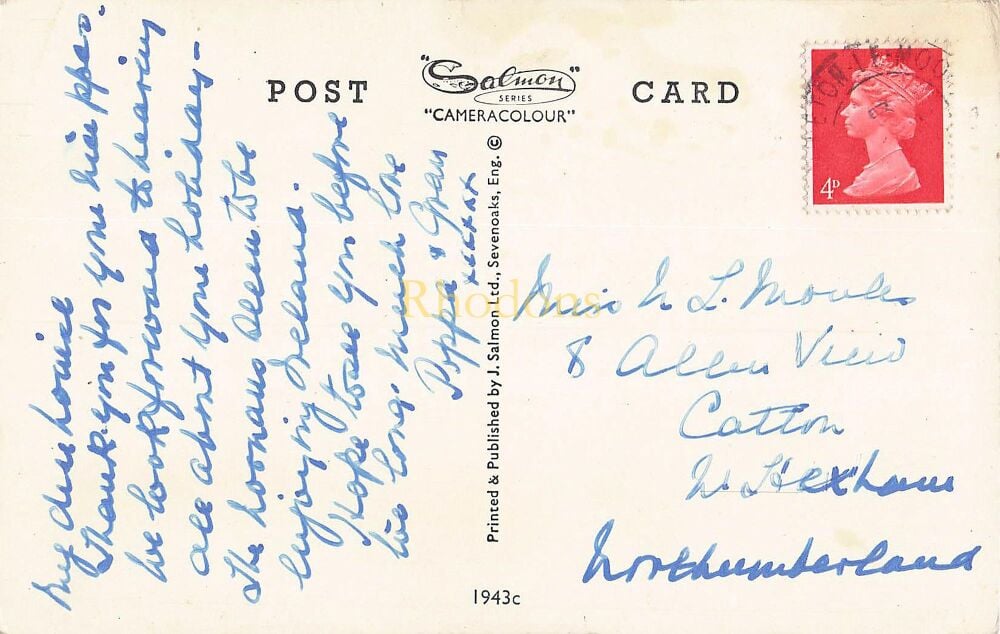 POST CARD
"Salmon"
SERIES
"CAMERACOLOUR"
My dear
Thank you for your
We look forward to hearing
all about your holiday -
The seem to be
enjoying Ireland.
Hope to see you before
too long. Much love
Poppa & Gran
xxxxxx
Printed & Published by J. Salmon Ltd., Sevenoaks, Eng. ©
1943c
4D
Miss L. Moules
8 Allen View
Catton
Nr Hexham
Northumberland
Rhodons